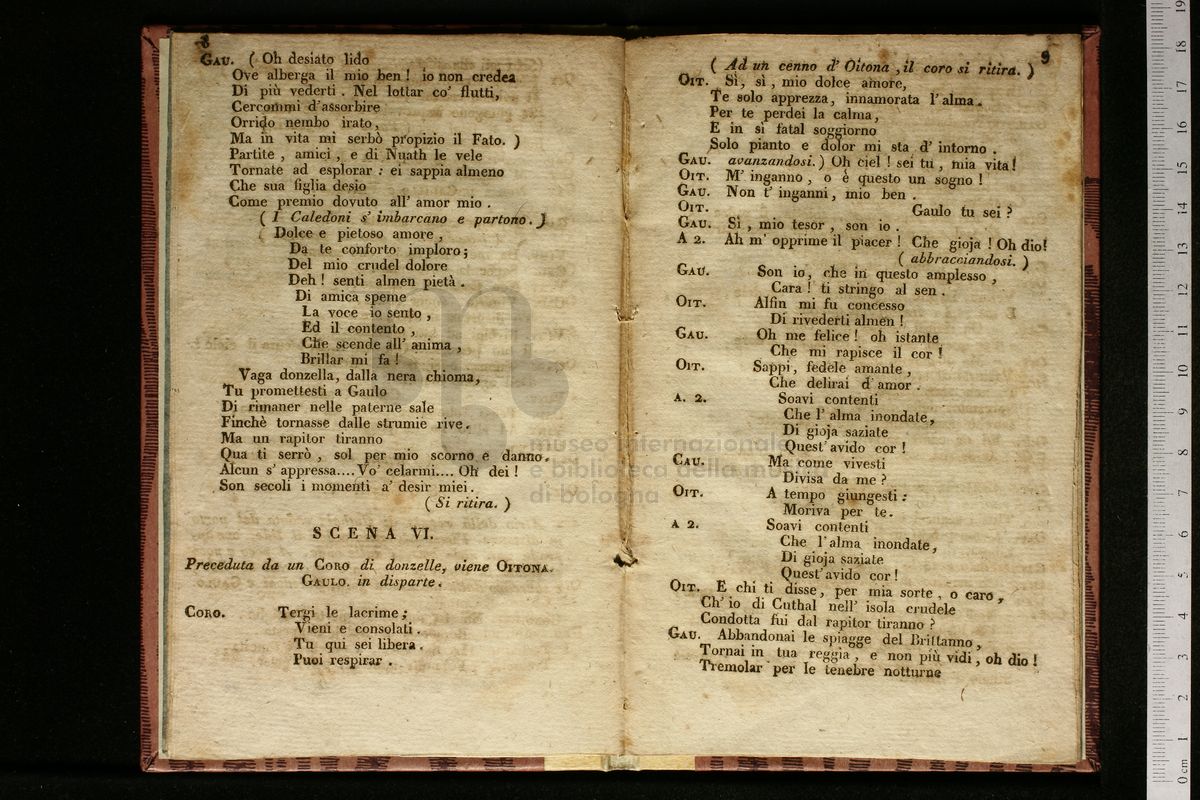 8
GAU. ( Oh desiato lido
Ove alberga il mio ben ! io non credea
Di più vederti . Nel lottar co' flutti,
Cercommi d'assorbire
Orrido nembo irato,
Ma in vita mi serbò propizio il Fato. )
Partite , amici , e di Nuath le vele
Tornate ad esplorar : ei sappia almeno
Che sua figlia desio
Come premio dovuto all' amor mio .
( I Caledoni s' imbarcano e partono. )
Dolce e pietoso amore ,
Da te conforto imploro;
Del mio crudel dolore
Deh ! senti almen pietà .
Di amica speme
La voce io sento ,
Ed il contento ,
Che scende all' anima ,
Brillar mi fa !
Vaga donzella, dalla nera chioma,
Tu promettesti a Gaulo
Di rimaner nelle paterne sale
Finchè tornasse dalle strumie rive.
Ma un rapitor tiranno
Qua ti serrò , sol per mio scorno e danno.
Alcun s' appressa.... Vo' celarmi.... Oh dei !
Son secoli i momenti a' desir miei.
( Si ritira. )
SCENA VI.
Preceduta da un CORO di donzelle, viene OITONA.
GAULO. in disparte.
CORO. Tergi le lacrime ;
Vieni e consolati .
Tu qui sei libera .
Puoi respirar .
9
( Ad un cenno d' Oitona , il coro si ritira. )
OIT. Sì, sì , mio dolce amore,
Te solo apprezza, innamorata l'alma.
Per te perdei la calma,
E in sì fatal soggiorno
Solo pianto e dolor mi sta d' intorno .
GAU. avanzandosi. ) Oh ciel ! sei tu , mia vita!
OIT. M' inganno , o è questo un sogno !
GAU. Non t' inganni, mio ben .
OIT. Gaulo tu sei ?
GAU. Sì , mio tesor , son io .
A 2. Ah m' opprime il piacer ! Che gioja ! Oh dio!
( abbracciandosi. )
GAU. Son io, che in questo amplesso ,
Cara ! ti stringo al sen .
OIT. Alfin mi fu concesso
Di rivederti almen !
GAU. Oh me felice ! oh istante
Che mi rapisce il cor !
OIT. Sappi, fedele amante ,
Che delirai d'amor .
A. 2. Soavi contenti
Che l'alma inondate,
Di gioja saziate
Quest' avido cor !
CAU. Ma come vivesti
Divisa da me ?
OIT. A tempo giungesti :
Moriva per te.
A 2. Soavi contenti
Che l'alma inondate,
Di gioja saziate
Quest' avido cor !
OIT. E chi ti disse, per mia sorte , o caro,
Ch' io di Cuthal nell' isola crudele
Condotta fui dal rapitor tiranno ?
GAU. Abbandonai le spiagge del Brittanno,
Tornai in tua reggia , e non più vidi, oh dio !
Tremolar per le tenebre notturne
museo internazionale
e biblioteca della musica
di bologna
0 cm 1 2 3 4 5 6 7 8 9 10 11 12 13 14 15 16 17 18 19